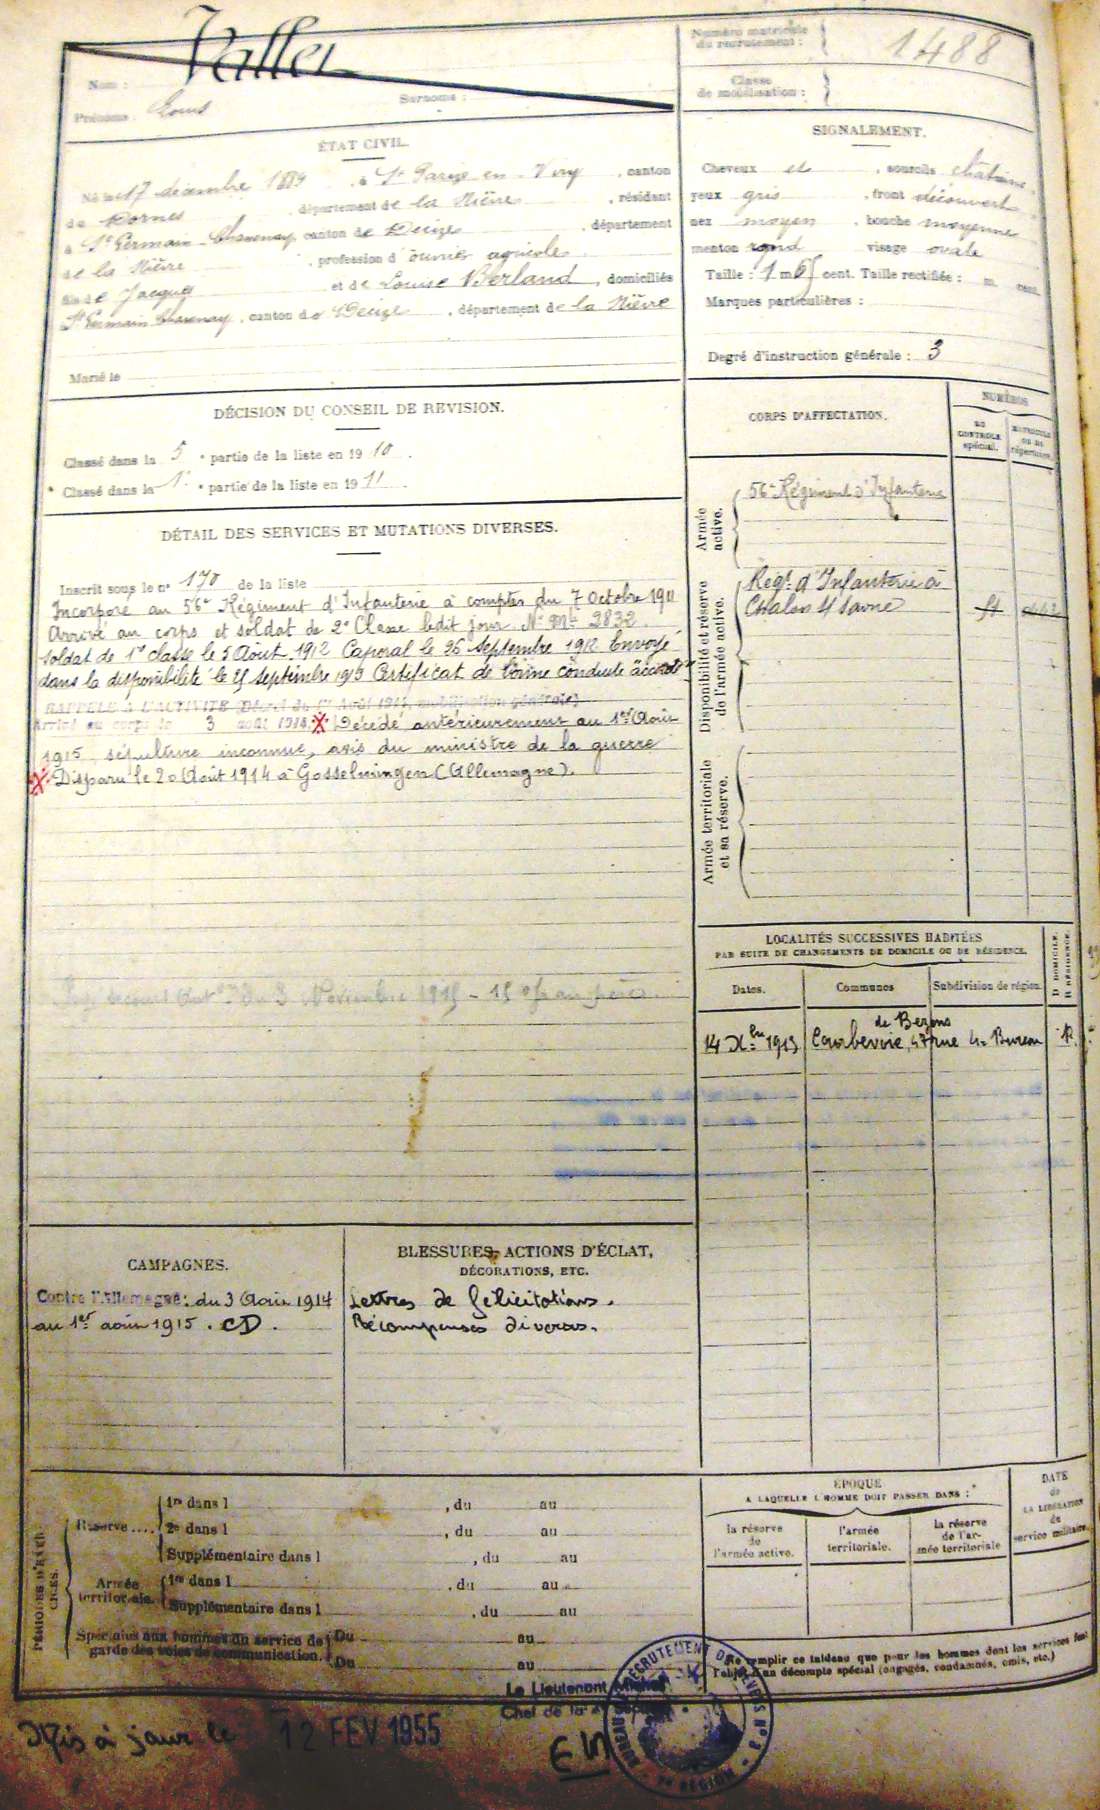 Nom : Vallet
Prénoms : Louis Surnoms :
Numéro matricule du recrutement : 1488
Classe de mobilisation :
ÉTAT CIVIL.
Né le 17 décembre 1889, à St Parize en Viry, canton
de Dornes, département de la Nièvre, résidant
à St Germain Chassenay, canton de Decize, département
de la Nièvre, profession d'ouvrier agricole
fils de Jacques et de Louise Berland, domiciliés
St Germain Chassenay, canton de Decize, département de la Nièvre
Marié le
SIGNALEMENT.
Cheveux et, sourcils châtains,
yeux gris, front découvert,
nez moyen, bouche moyenne
menton rond visage ovale
Taille : 1 m 65 cent. Taille rectifiée : m. cent.
Marques particulières :
Degré d'instruction générale : 3
DÉCISION DU CONSEIL DE REVISION.
Classé dans la 5e partie de la liste en 1910.
Classé dans la 1e partie de la liste en 1911.
DÉTAIL DES SERVICES ET MUTATIONS DIVERSES.
Inscrit sous le n° 170 de la liste
Incorporé au 56e Régiment d'Infanterie à compter du 7 Octobre 1911
Arrivé au corps et soldat de 2e Classe ledit jour. N° Mle 3832.
Soldat de 1e classe le 5 Août 1912 Caporal le 26 Septembre 1912 Envoyé
dans la disponibilité le 25 septembre 1913 Certificat de bonne conduite accordé
RAPPELÉ A L'ACTIVITÉ (Décret du 1er Août 1914, mobilisation générale)
Arrivé au corps le 3 août 1914. X Décédé antérieurement au 1er Août
1915, sépulture inconnue, avis du ministre de la guerre
X Disparu le 20 Août 1914 à Gosselmingen (Allemagne).
du 3 Novembre 1915 - 150f au père.
CORPS D'AFFECTATION.
NUMÉROS
AU CONTROLE spécial.
MATRICULE OU AU répertoire.
Armée active.
56e Régiment d'Infanterie
Disponibilité et réserve de l'armée active.
Régt d'Infanterie à
Chalon s/ Saône
Armée territoriale et sa réserve.
LOCALITÉS SUCCESSIVES HABITÉES
PAR SUITE DE CHANGEMENTS DE DOMICILE OU DE RÉSIDENCE.
Dates. Communes Subdivision de région. D DOMICILE. R RÉSIDENCE.
de Bezons
14 Xbre 1913 Courbevoie, 47 rue 4e Bureau R.
CAMPAGNES.
Contre l'Allemagne : du 3 Août 1914
au 1er août 1915. CD.
BLESSURES, ACTIONS D'ÉCLAT,
DÉCORATIONS, ETC.
Lettres de félicitations.
Récompenses diverses.
PÉRIODES D'EXERCICES.
Réserve....
1re dans l , du au
2e dans l , du au
Supplémentaire dans l , du au
Armée territoriale.
1re dans l , du au
Supplémentaire dans l , du au
Spéciales aux hommes du service de garde des voies de communication.
Du au
Du au
ÉPOQUE
A LAQUELLE L'HOMME DOIT PASSER DANS :
la réserve de l'armée active.
l'armée territoriale.
la réserve de l'armée territoriale
DATE de LA LIBÉRATION du service militaire.
Ne remplir ce tableau que pour les hommes dont les services font
l'objet d'un décompte spécial (engagés, condamnés, omis, etc.)
Le Lieutenant
Chef de la
BUREAU DE RECRUTEMENT DE NEVERS N° 3
RÉGION
Mis à jour le 12 FEV 1955